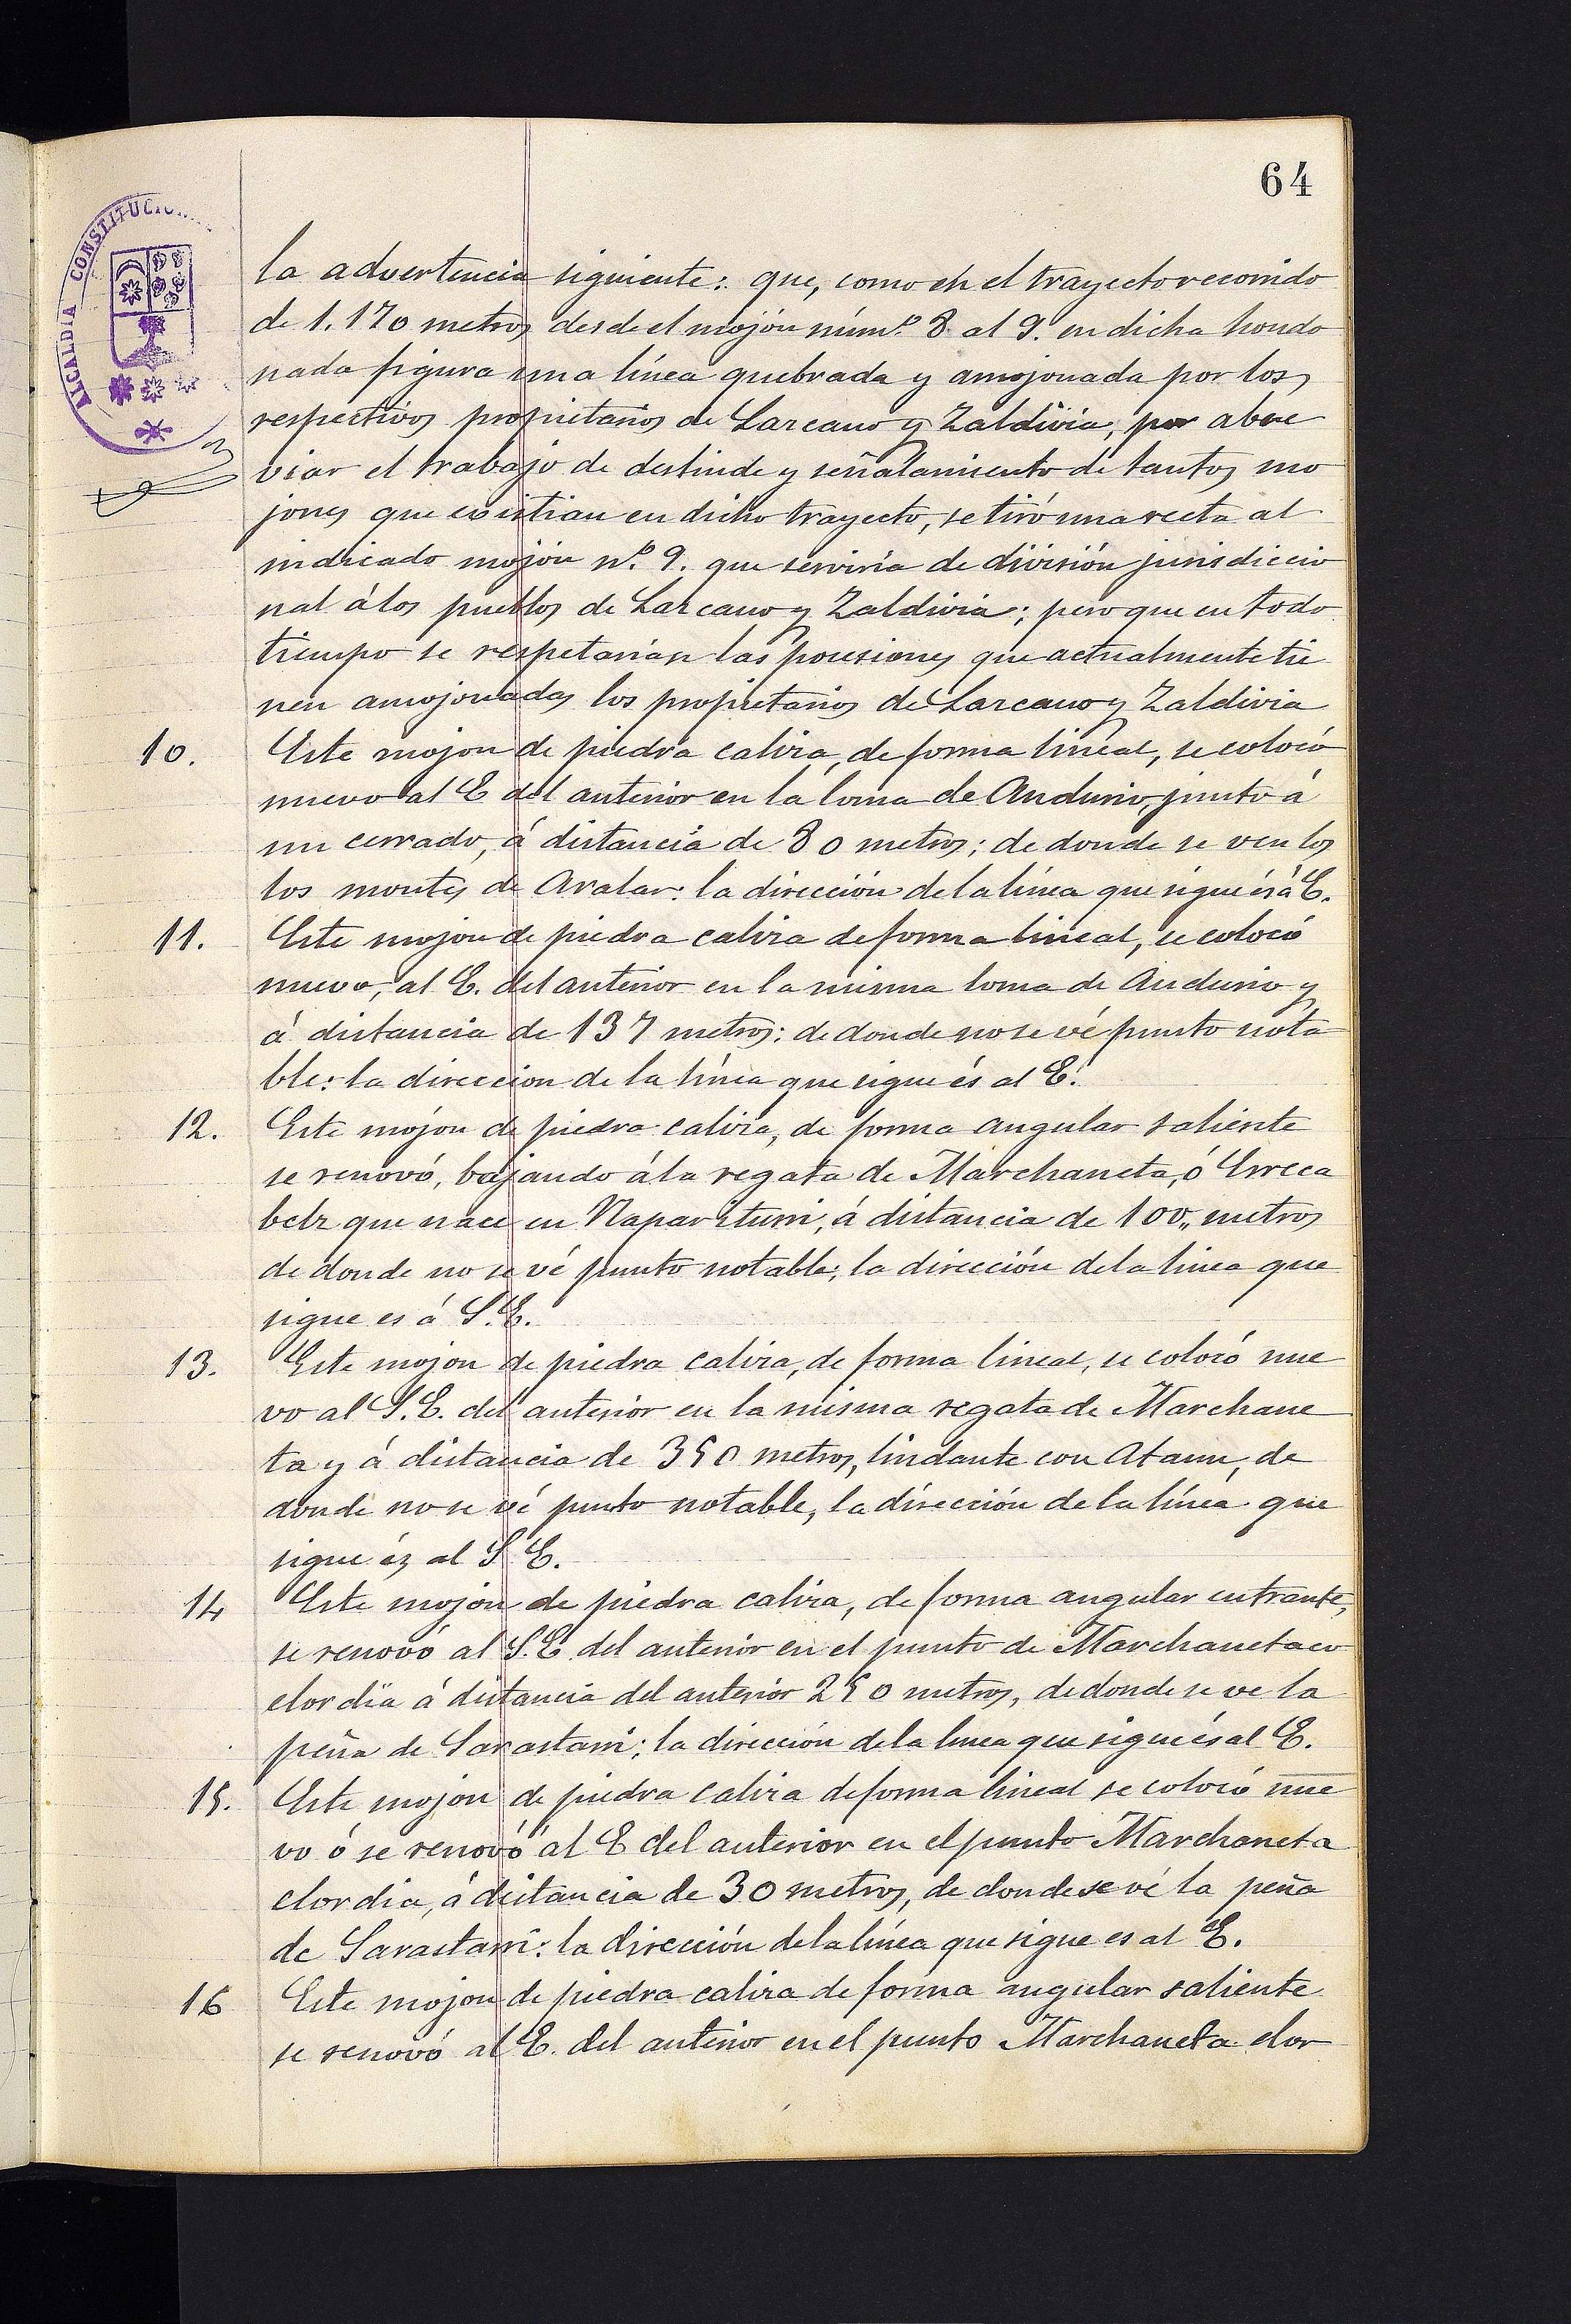 64
ALCALDÍA CONSTITUCION
la advertencia siguiente: que, como en el trayecto recorrido
de 1.170 metros desde el mojón núm.º 8 al 9. en dicha hondo
nada figura una línea quebrada y amojonada por los
respectivos propietarios de Lazcano y Zaldivia, por abre
viar el trabajo de deslinde y señalamiento de tantos mo
jones que existian en dicho trayecto, se tiró una recta al
indicado mojón n.º 9. que serviria de división jurisdiccio
nal á los pueblos de Lazcano y Zaldivia; pero que en todo
tiempo se respetarían las posesiones que actualmente tie
nen amojonadas los propietarios de Lazcano y Zaldivia
10. Este mojon de piedra caliza, de forma lineal, se colocó
nuevo al E del anterior en la loma de Andurio, junto á
un cerrado, á distancia de 80 metros; de donde se ven los
los montes de Aralar: la dirección de la línea que sigue és á E.
11. Este mojon de piedra caliza de forma lineal, se colocó
nuevo, al E. del anterior en la misma loma de Andurio y
á distancia de 137 metros: de donde no se vé punto nota
ble: la direccion de la línea que sigue és al E.
12. Este mojón de piedra caliza, de forma angular saliente
se renovó, bajando á la regata de Marchaneta, ó Erreca
belz que nace en Naparitturri, á distancia de 100,, metros
de donde no se vé punto notable; la dirección de la linea que
sigue es á S.E.
13. Este mojon de piedra caliza, de forma lineal, se colocó nue
vo al S.E. del anterior en la misma regata de Marchane
ta y á distancia de 350 metros, lindante con Ataun, de
donde no se vé punto notable, la dirección de la línea que
sigue és al S E.
14 Este mojón de piedra caliza, de forma angular entrante,
se renovó al S.E. del anterior en el punto de Marchanetaco
elordia á distancia del anterior 250 metros, de donde se ve la
peña de Sarastarri; la dirección de la linea que sigue és al E.
15. Este mojon de piedra caliza de forma lineal se colocó nue
vo ó se renovó al E del anterior en el punto Marchaneta
elordia, á distancia de 30 metros, de donde se vé la peña
de Sarastarri: la dirección de la línea que sigue es al E.
16 Este mojon de piedra caliza de forma angular saliente
se renovó al E. del anterior en el punto Marchaneta elor